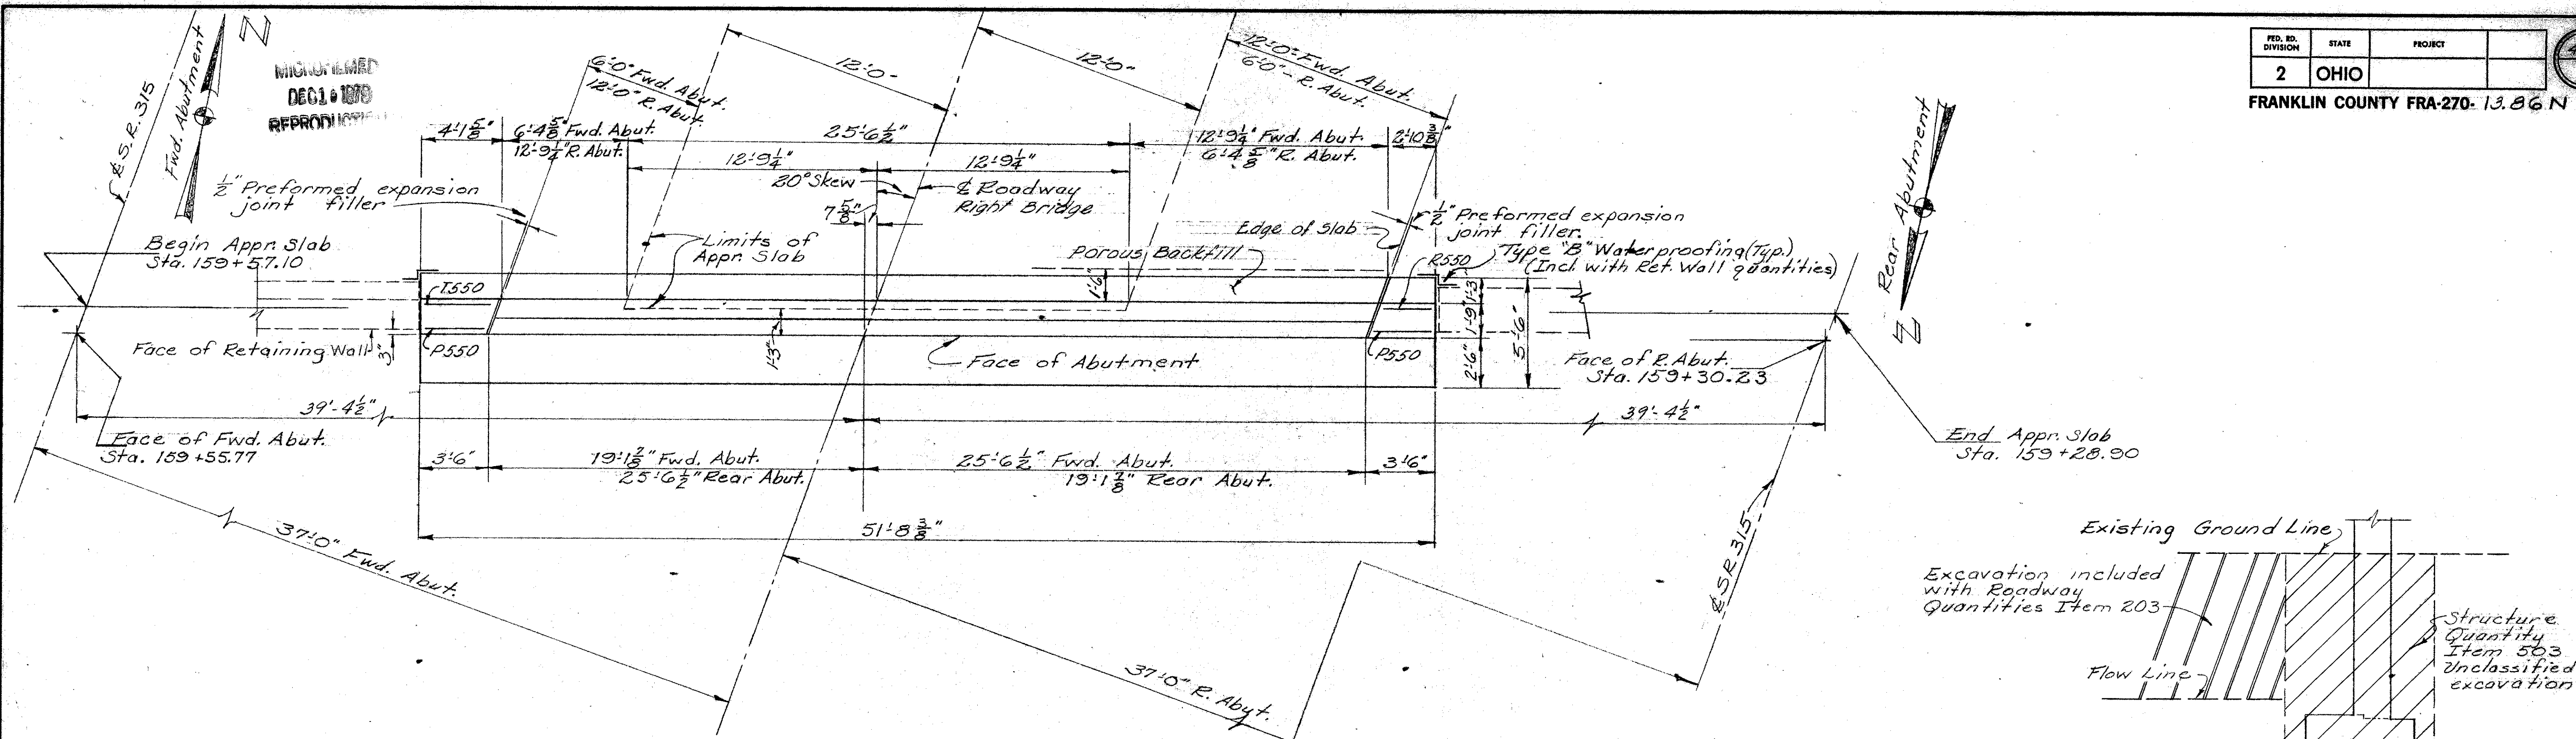 FED. RD. DIVISION
STATE
PROJECT
2
OHIO
FRANKLIN COUNTY FRA-270- 13.86 N
MICROFILMED
DEC 1 1979
℄ S.R. 315
Fwd. Abutment
Z
6'-0" Fwd. Abut.
12'-0" R. Abut.
12'-0"
12'-0"
12'-0" Fwd. Abut.
6'-0" - R. Abut.
4'-1 5/8"
6'-4 5/8" Fwd. Abut.
12'-9 1/4" R. Abut.
25'-6 1/2"
12'-9 1/4" Fwd. Abut.
6'-4 5/8" R. Abut.
2'-10 3/8"
12'-9 1/4"
12'-9 1/4"
20° Skew
℄ Roadway
Right Bridge
7 5/8"
1/2" Preformed expansion
joint filler
Begin Appr. Slab
Sta. 159+57.10
Limits of
Appr. Slab
Edge of Slab
Porous Backfill
1/2" Preformed expansion
joint filler.
Type "B" Waterproofing (Typ.)
(Incl. with Ret. Wall quantities)
R550
T550
P550
P550
1'-6"
1'-3"
1'-3
1'-9"
2'-6"
5'-6"
3"
Face of Retaining Wall
Face of Abutment
Face of R. Abut.
Sta. 159+30.23
Rear Abutment
Z
39'-4 1/2"
39'-4 1/2"
Face of Fwd. Abut.
Sta. 159+55.77
3'-6"
19'-1 7/8" Fwd. Abut.
25'-6 1/2" Rear Abut.
25'-6 1/2" Fwd. Abut.
19'-1 7/8" Rear Abut.
3'-6"
End Appr. Slab
Sta. 159+28.90
51'-8 3/8"
37'-0" Fwd. Abut.
37'-0" R. Abut.
℄ S.R. 315
Existing Ground Line
Excavation included
with Roadway
Quantities Item 203
Flow Line
Structure
Quantity
Item 503
Unclassified
excavation